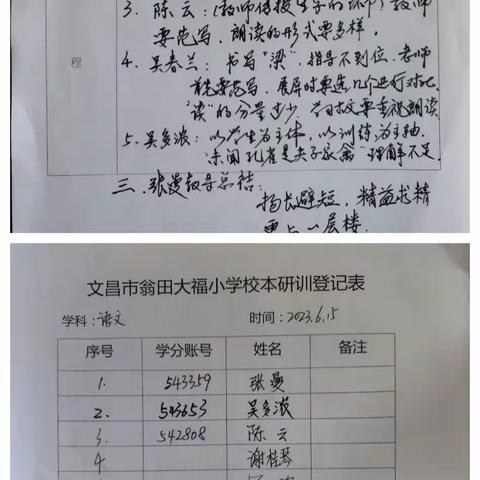 3. 陈云:(教师
要范写、朗读的形式要多样。
程
4. 吴春兰:书写"梁",指导不到位,老师
要范写,展屏时要选几个进行对比,
"读"的分量过少,学习古文要重视朗读
5. 吴多波:以学生为主体,以训练为主轴.
未闻孔雀是夫子家禽"理解不足.
三、张曼 总结:
扬长避短,精益求精
更上一层楼.
文昌市翁田大福小学校本研训登记表
学科:语文 时间:2023.6.15
序号 学分账号 姓名 备注
1. 543359 张曼
2. 543653 吴多波
3. 542808 陈云
4. 谢桂琴